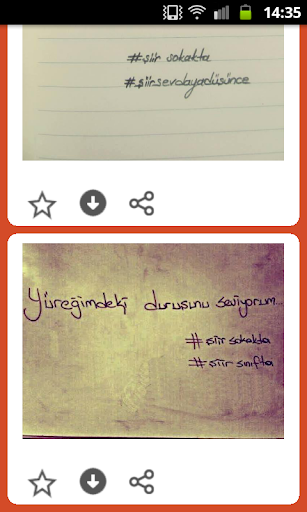 14:35
#şiir sokakta
#şiirsevdayadüşünce
Yüreğimdeki duruşunu seviyorum...
#şiir sokakta
#şiir sınıfta